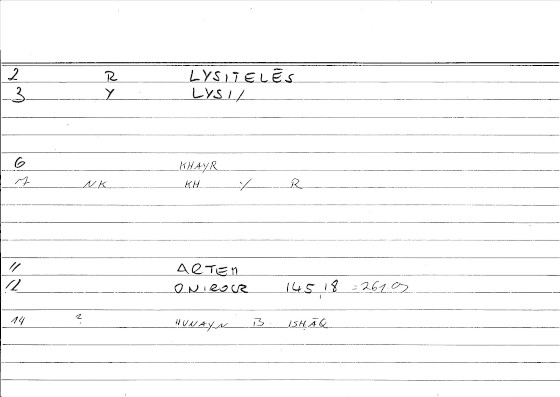 2 R LYSITELĒS
3 Y LYSI/
6 KHAYR
7 NK KH Y R
11 ARTEM
12 ONIROCR 145,18 =261,07
14 ? ḤUNAYN B ISḤĀQ